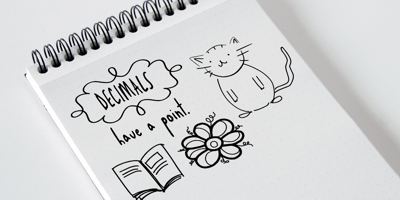 DECIMALS
have a point.